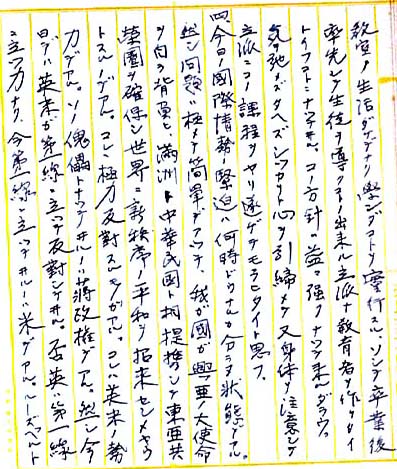 教室ノ生活ダケデナリ学ンダコトヲ実行スル、ソシテ卒業後
率先シテ生徒ヲ導クコトノ出来ル立派ナ教育者ヲ作リタイ
トイフコトニナツテヰル。コノ方針ハ益々強クナツテ来ルダラウ。
気ヲ弛メズタヘズシツカリト心ヲ引締メテ又身体ニ注意シテ
立派ニコノ課程ヲヤリ遂ゲテモラヒタイト思フ。
四、今日ノ国際情勢ノ緊迫ハ何時ドウナルカ分ラヌ状態デアル。
然シ問題ハ極メテ簡単デアツテ、我ガ国ガ興亜ノ大使命
ヲ自ラ背負ヒ、満洲ト中華民国ト相提携シテ東亜共
栄圏ヲ確保シ世界ニ新秩序ノ平和ヲ招来センメヤウ
トスルノデアル。コレニ極力反対スルモノガアル。コレ英米ノ勢
力デアル。ソノ傀儡トナツテヰルノハ蒋政権デアル。然シ今
日デハ英米ガ第一線ニ立ツテ反対シテヰル。否英ハ第一線
ニ立ツ力ナク、今第一線ニ立ツテヰルノハ米デアル。ルーズベルト